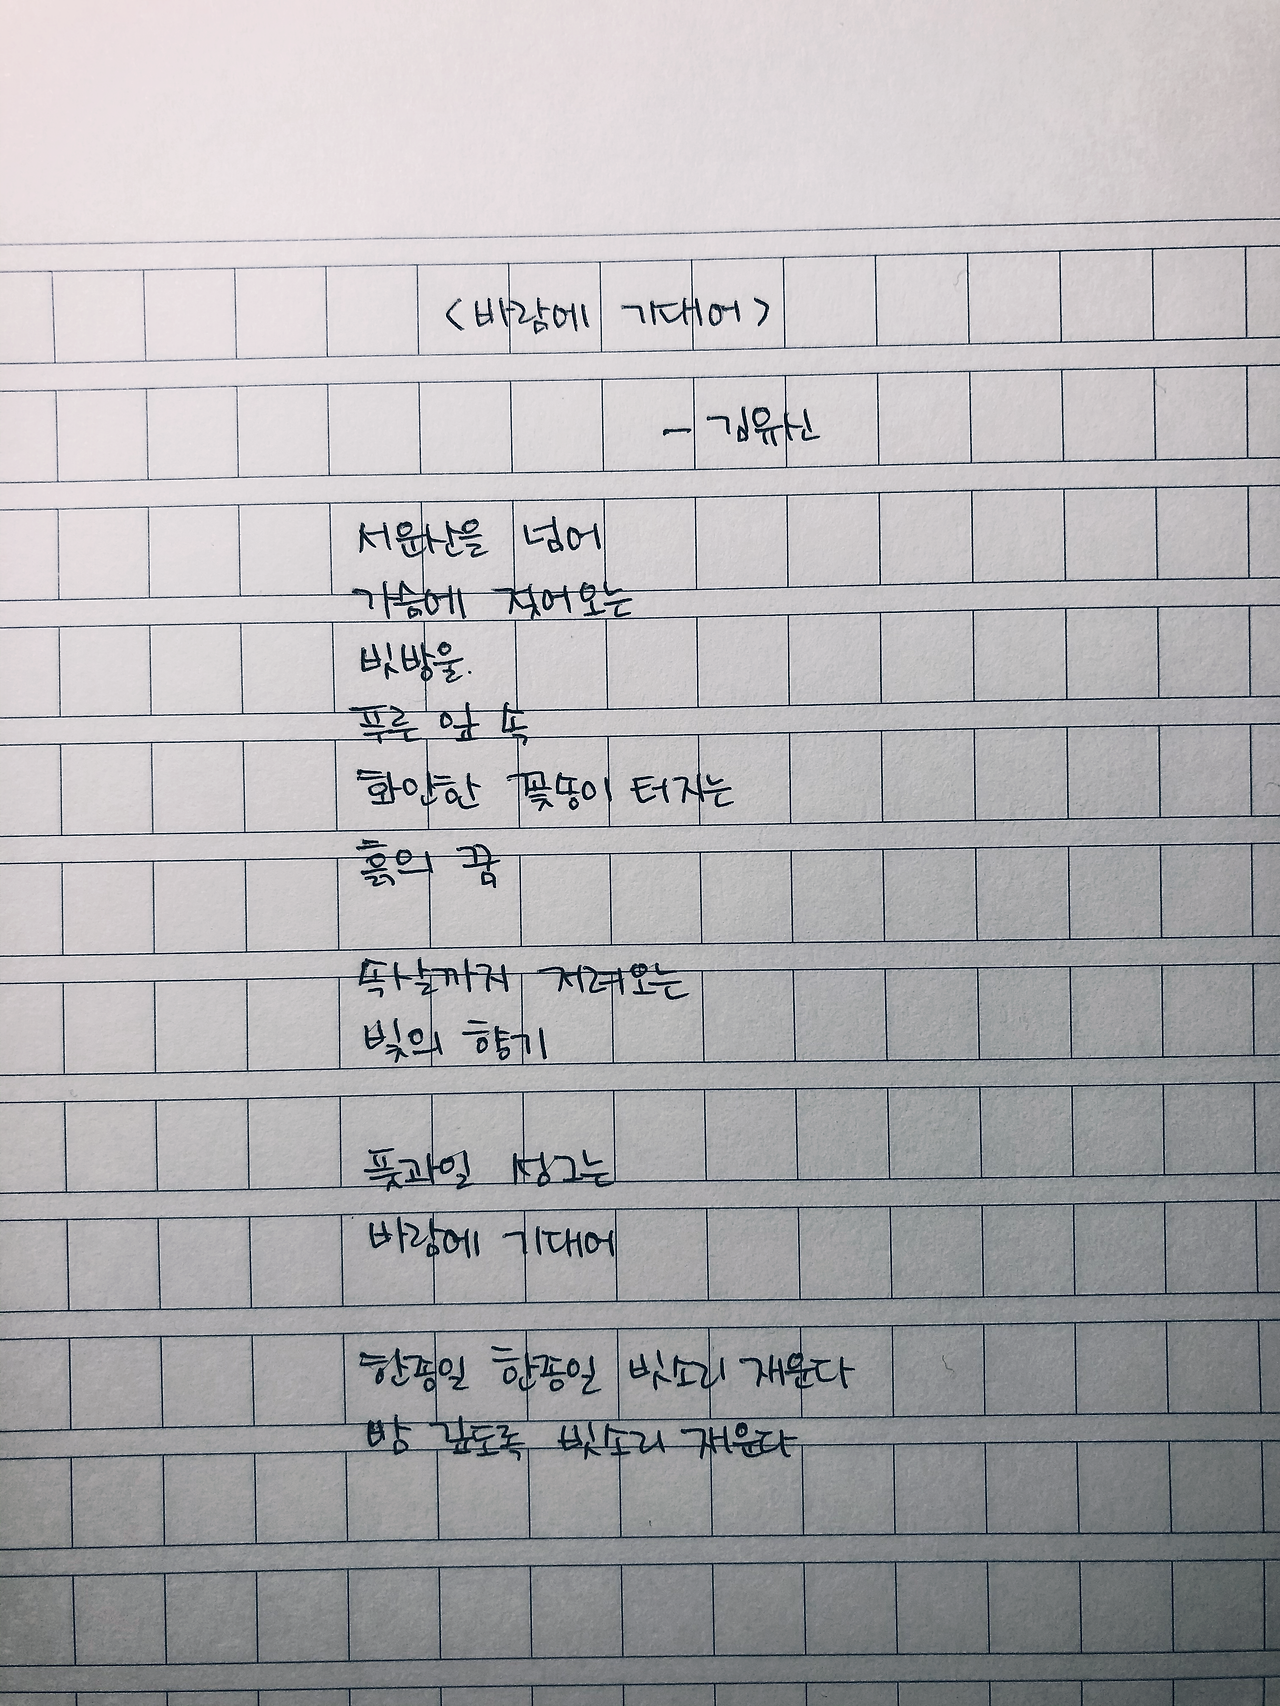 <바람에 기대어>
- 김유신
서운산을 넘어
가슴에 젖어오는
빗방울.
푸른 잎 속
화안한 꽃똥이 터지는
흙의 꿈
속살까지 저려오는
빛의 향기
풋과일 싱그는
바람에 기대어
한종일 한종일 빗소리 재운다
밤 깊도록 빗소리 재운다